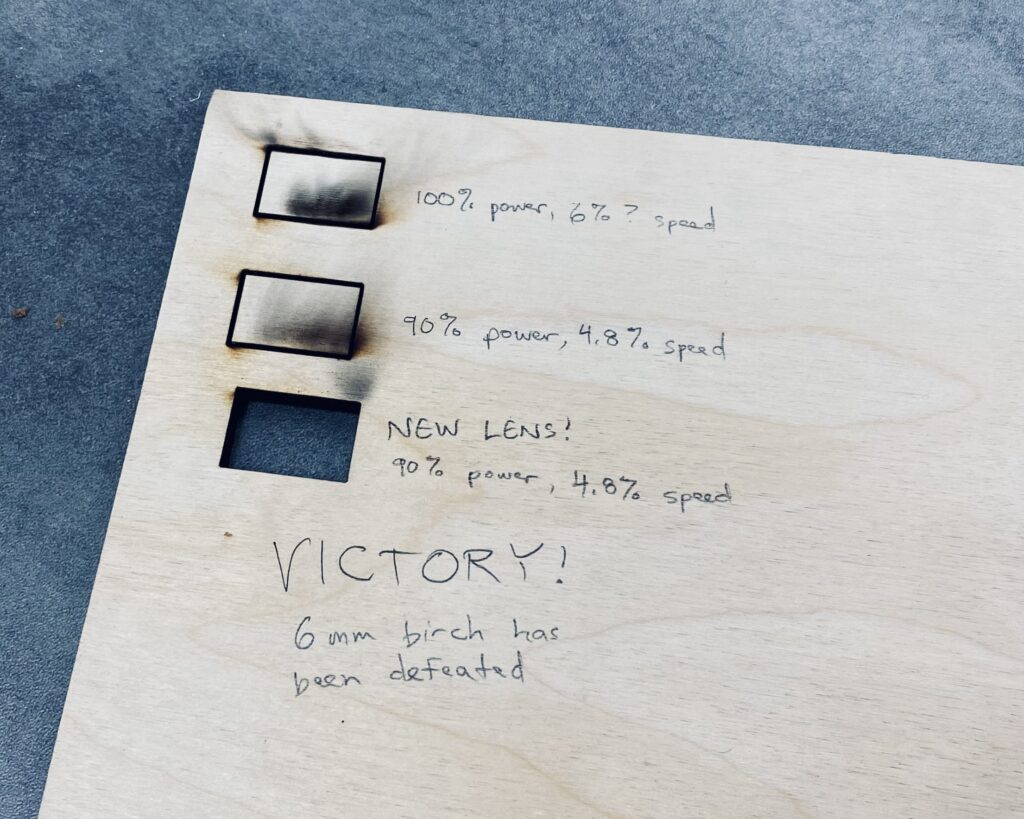 100% power, 6% ? speed
90% power, 4.8% speed
NEW LENS!
90% power, 4.8% speed
VICTORY!
6mm birch has
been defeated